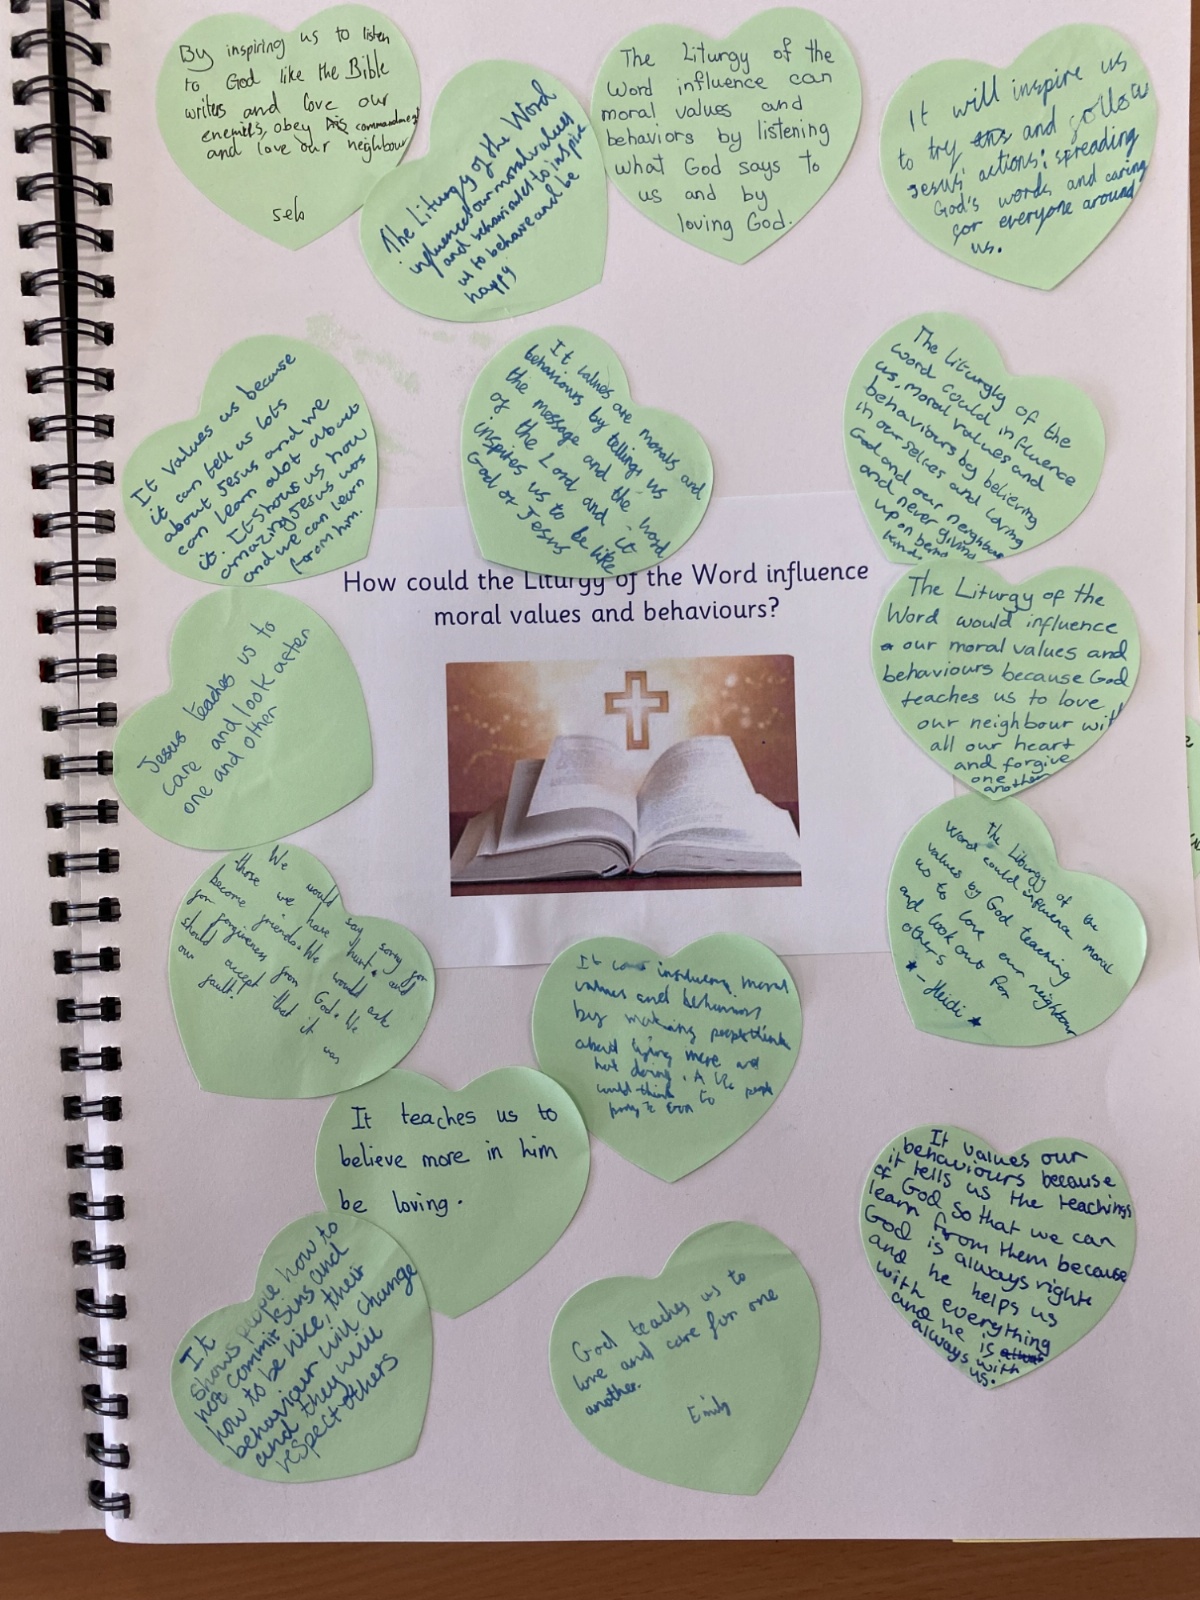 By inspiring us to listen
to God like the Bible
writers and love our
enemies, obey his commandment
and love our neighbour
seb
The Liturgy of the Word
influences our moral values
and behaviours to inspire
us to behave and be
happy
The Liturgy of the
Word influence can
moral values and
behaviors by listening
what God says to
us and by
loving God.
It will inspire us
to try and follow
Jesus' actions: spreading
God's words and caring
for everyone around
us.
It values us because
it can tell us lots
about Jesus and we
can learn alot about
it. It shows us how
amazing Jesus was
and we can learn
from him.
It values are morals and
behaviours by tellings us
the message and the word
of the Lord and it
inspires us to be like
God or Jesus
The liturgly of the
word could influence
us, moral values and
behaviours by believing
in ourselves and loving
God and our neighbour
and never giving
up on being
kind
How could the Liturgy of the Word influence
moral values and behaviours?
Jesus teaches us to
care and look after
one and other
The Liturgy of the
Word would influence
our moral values and
behaviours because God
teaches us to love
our neighbour with
all our heart
and forgive
one
another
We would say sorry for
those we have hurt and
become friends. We would ask
for forgiveness from God. We
should accept that it was
our fault!
the Liturgy of the
word could influence moral
values by God teaching
us to love our neighbour
and look out for
others
- Heidi
It influence moral
values and behaviours
by making people think
about
not doing.
think
It teaches us to
believe more in him
be loving.
It
shows people how to
not commit sins and
how to be nice, their
behaviour will change
and they will
respect others
God teaches us to
love and care for one
another.
Emily
It values our
behaviours because
it tells us the teachings
of God so that we can
learn from them because
God is always right
and he helps us
with everything
and he is
always with
us.